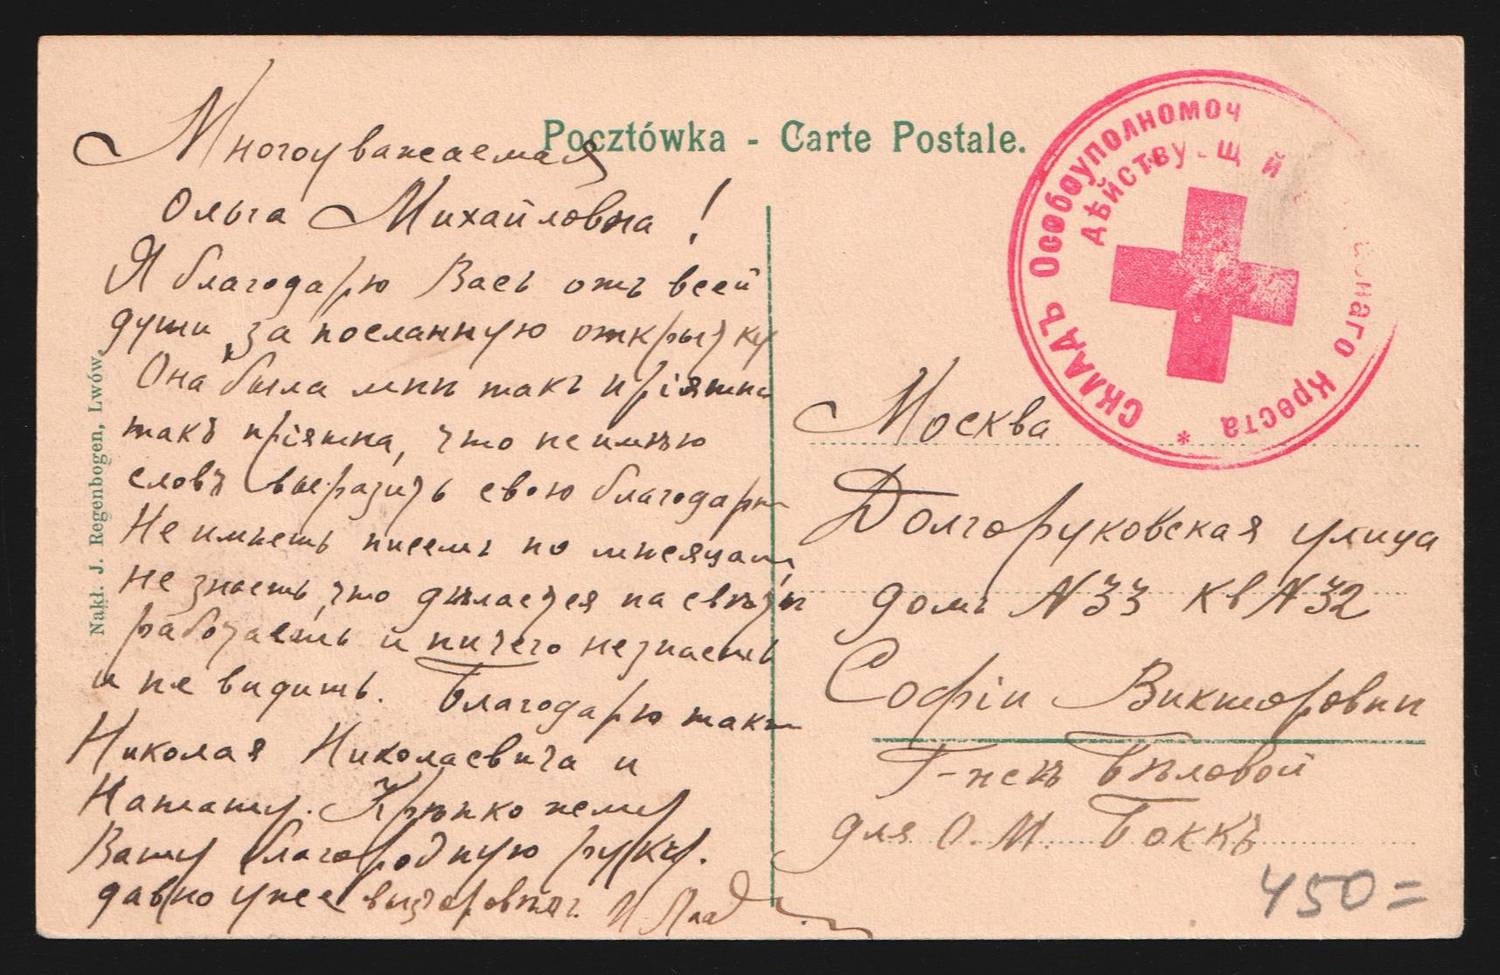 Pocztówka - Carte Postale.
Многоуважаемая
Ольга Михайловна!
Я благодарю Васъ отъ всей
души за посланную открытку
Она была мнѣ такъ пріятна
такъ пріятна, что не имѣю
словъ выразить свою благодарн
Не имѣешь писемъ по мѣсяцамъ,
не знаешь, что дѣлается на свѣтѣ
работаешь и ничего не знаешь
и не видишь. Благодарю также
Николая Николаевича и
Наташу. Крѣпко жму
Вашу благородную руку.
давно уже выздоровѣлъ.
Nakł. J. Regenbogen, Lwów.
СКЛАДЪ Особоуполномоч
дѣйству щ й
Креста *
Москва
Долгоруковская улица
домъ № 33 кв № 32
Софіи Викторовни
Г-жѣ Бѣловой
для О. М. Боккъ
450=